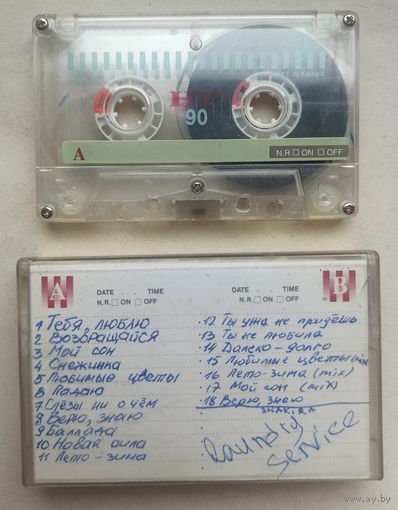 MADE IN KOREA
HF
90
A
N.R □ ON □ OFF
A
DATE . . TIME
N.R. □ ON □ OFF
1 Тебя, люблю
2 Возвращайся
3 Мой сон
4 Снежинка
5 Любимые цветы
6 Падаю
7 Слёзы ни о чём
8 Верю, знаю
9 Баллада
10 Новая сила
11 Лето - зима
B
DATE . . TIME
N.R. □ ON □ OFF
12 Ты уже не придёшь
13 Ты не любила
14 Далеко-долго
15 Любимые цветы (mix)
16 Лето-зима (mix)
17 Мой сон (mix)
18 Верю, знаю
SHAKIRA
Laundry
Service
ay.by